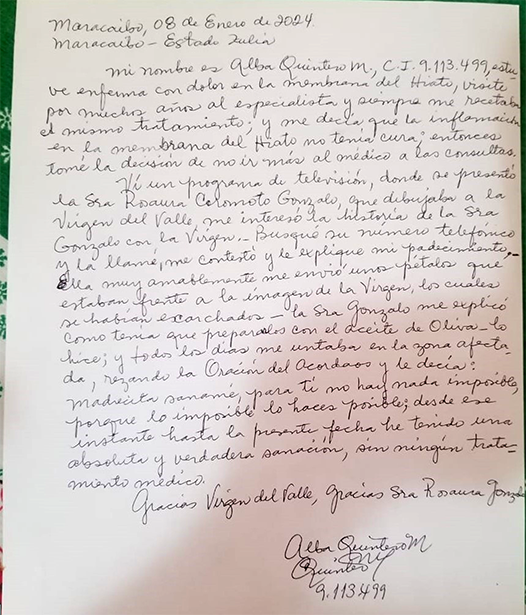 Maracaibo, 08 de Enero de 2024.
Maracaibo - Estado Zulia
Mi nombre es Alba Quintero M., C.I. 9.113.499, estu-
ve enferma con dolor en la membrana del Hiato, visite
por muchos años al especialista y siempre me recetaba
el mismo tratamiento; y me decía que la inflamación
en la membrana del Hiato no tenía cura; entonces
tomé la decisión de no ir más al médico a las consultas.
Ví un programa de televisión, donde se presentó
la Sra Rosaura Coromoto Gonzalo, que dibujaba a la
Virgen del Valle, me interesó la historia de la Sra
Gonzalo con la Virgen._ Busqué su número telefónico
y la llamé, me contestó y le explique mi padecimiento._
Ella muy amablemente me envió unos pétalos que
estaban frente a la imagen de la Virgen, los cuales
se habían escarchados - la Sra Gonzalo me explicó
como tenía que prepararlos con el aceite de Oliva - lo
hice; y todos los días me untaba en la zona afecta-
da, rezando la Oración del Acordaos y le decía:
Madrecita saname, para tí no hay nada imposible,
porque lo imposible lo haces posible; desde ese
instante hasta la presente fecha he tenido una
absoluta y verdadera sanación, sin ningún trata-
miento médico.
Gracias Virgen del Valle, Gracias Sra Rosaura Gonzalo
Alba Quintero M
Quintero
9.113.499